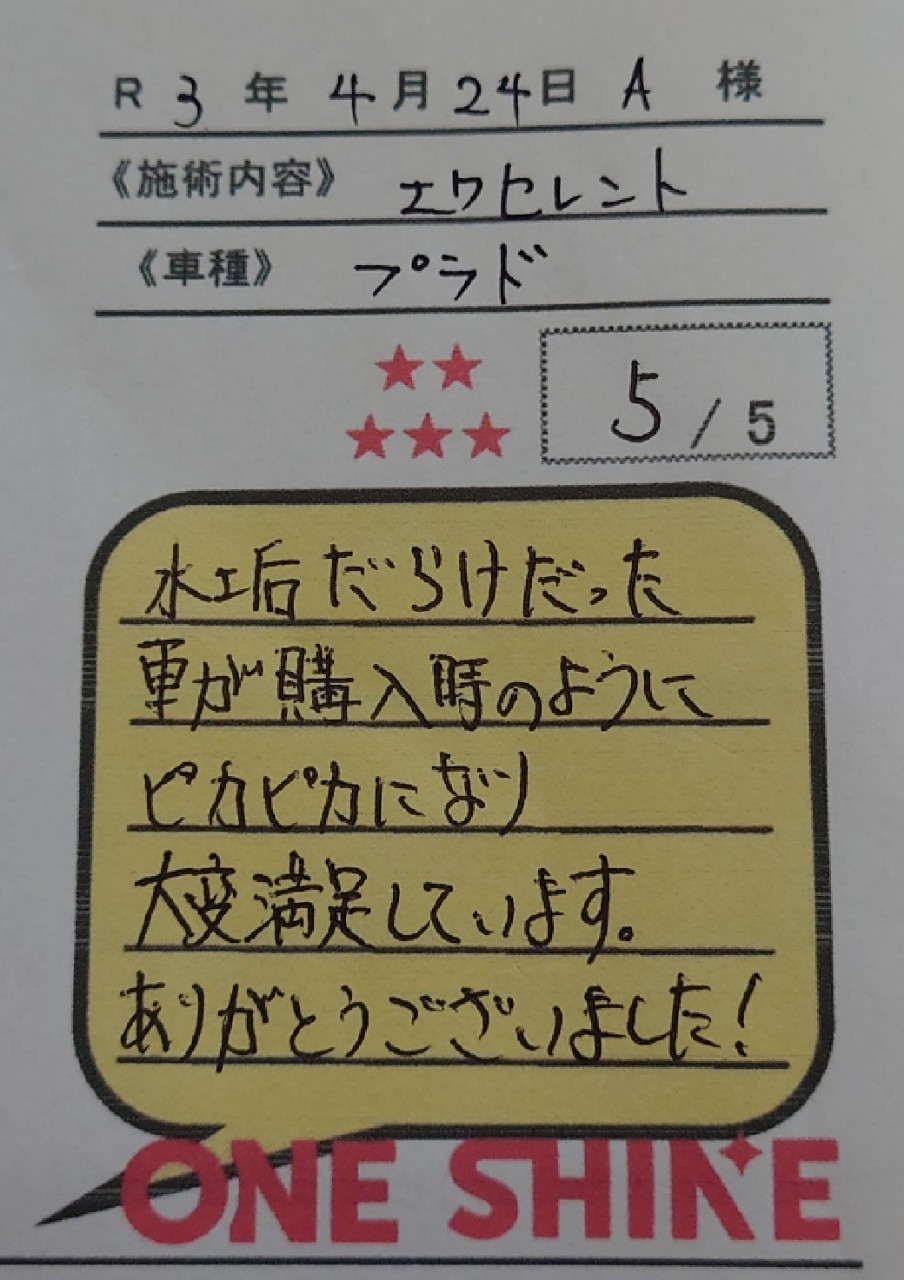 R 3 年 4 月 24 日 A 様
《施術内容》 エクセレント
《車種》 プラド
5 / 5
水垢だらけだった
車が購入時のように
ピカピカになり
大変満足しています。
ありがとうございました!
ONE SHINE